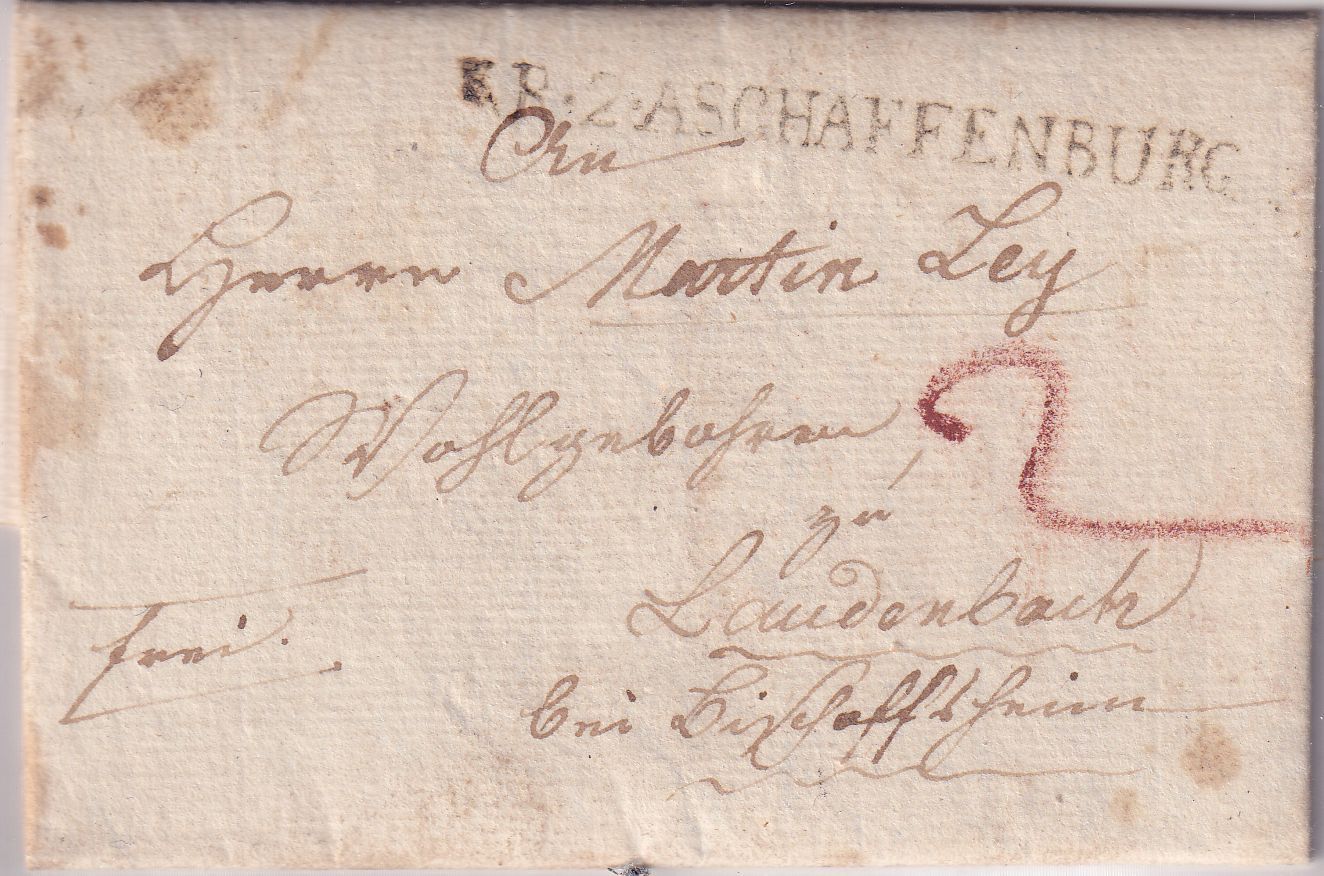 R. 2. ASCHAFFENBURG
An
Herrn Martin Ley
Wohlgebohren
2
zu
Laudenbach
frei.
bei Bischoffsheim